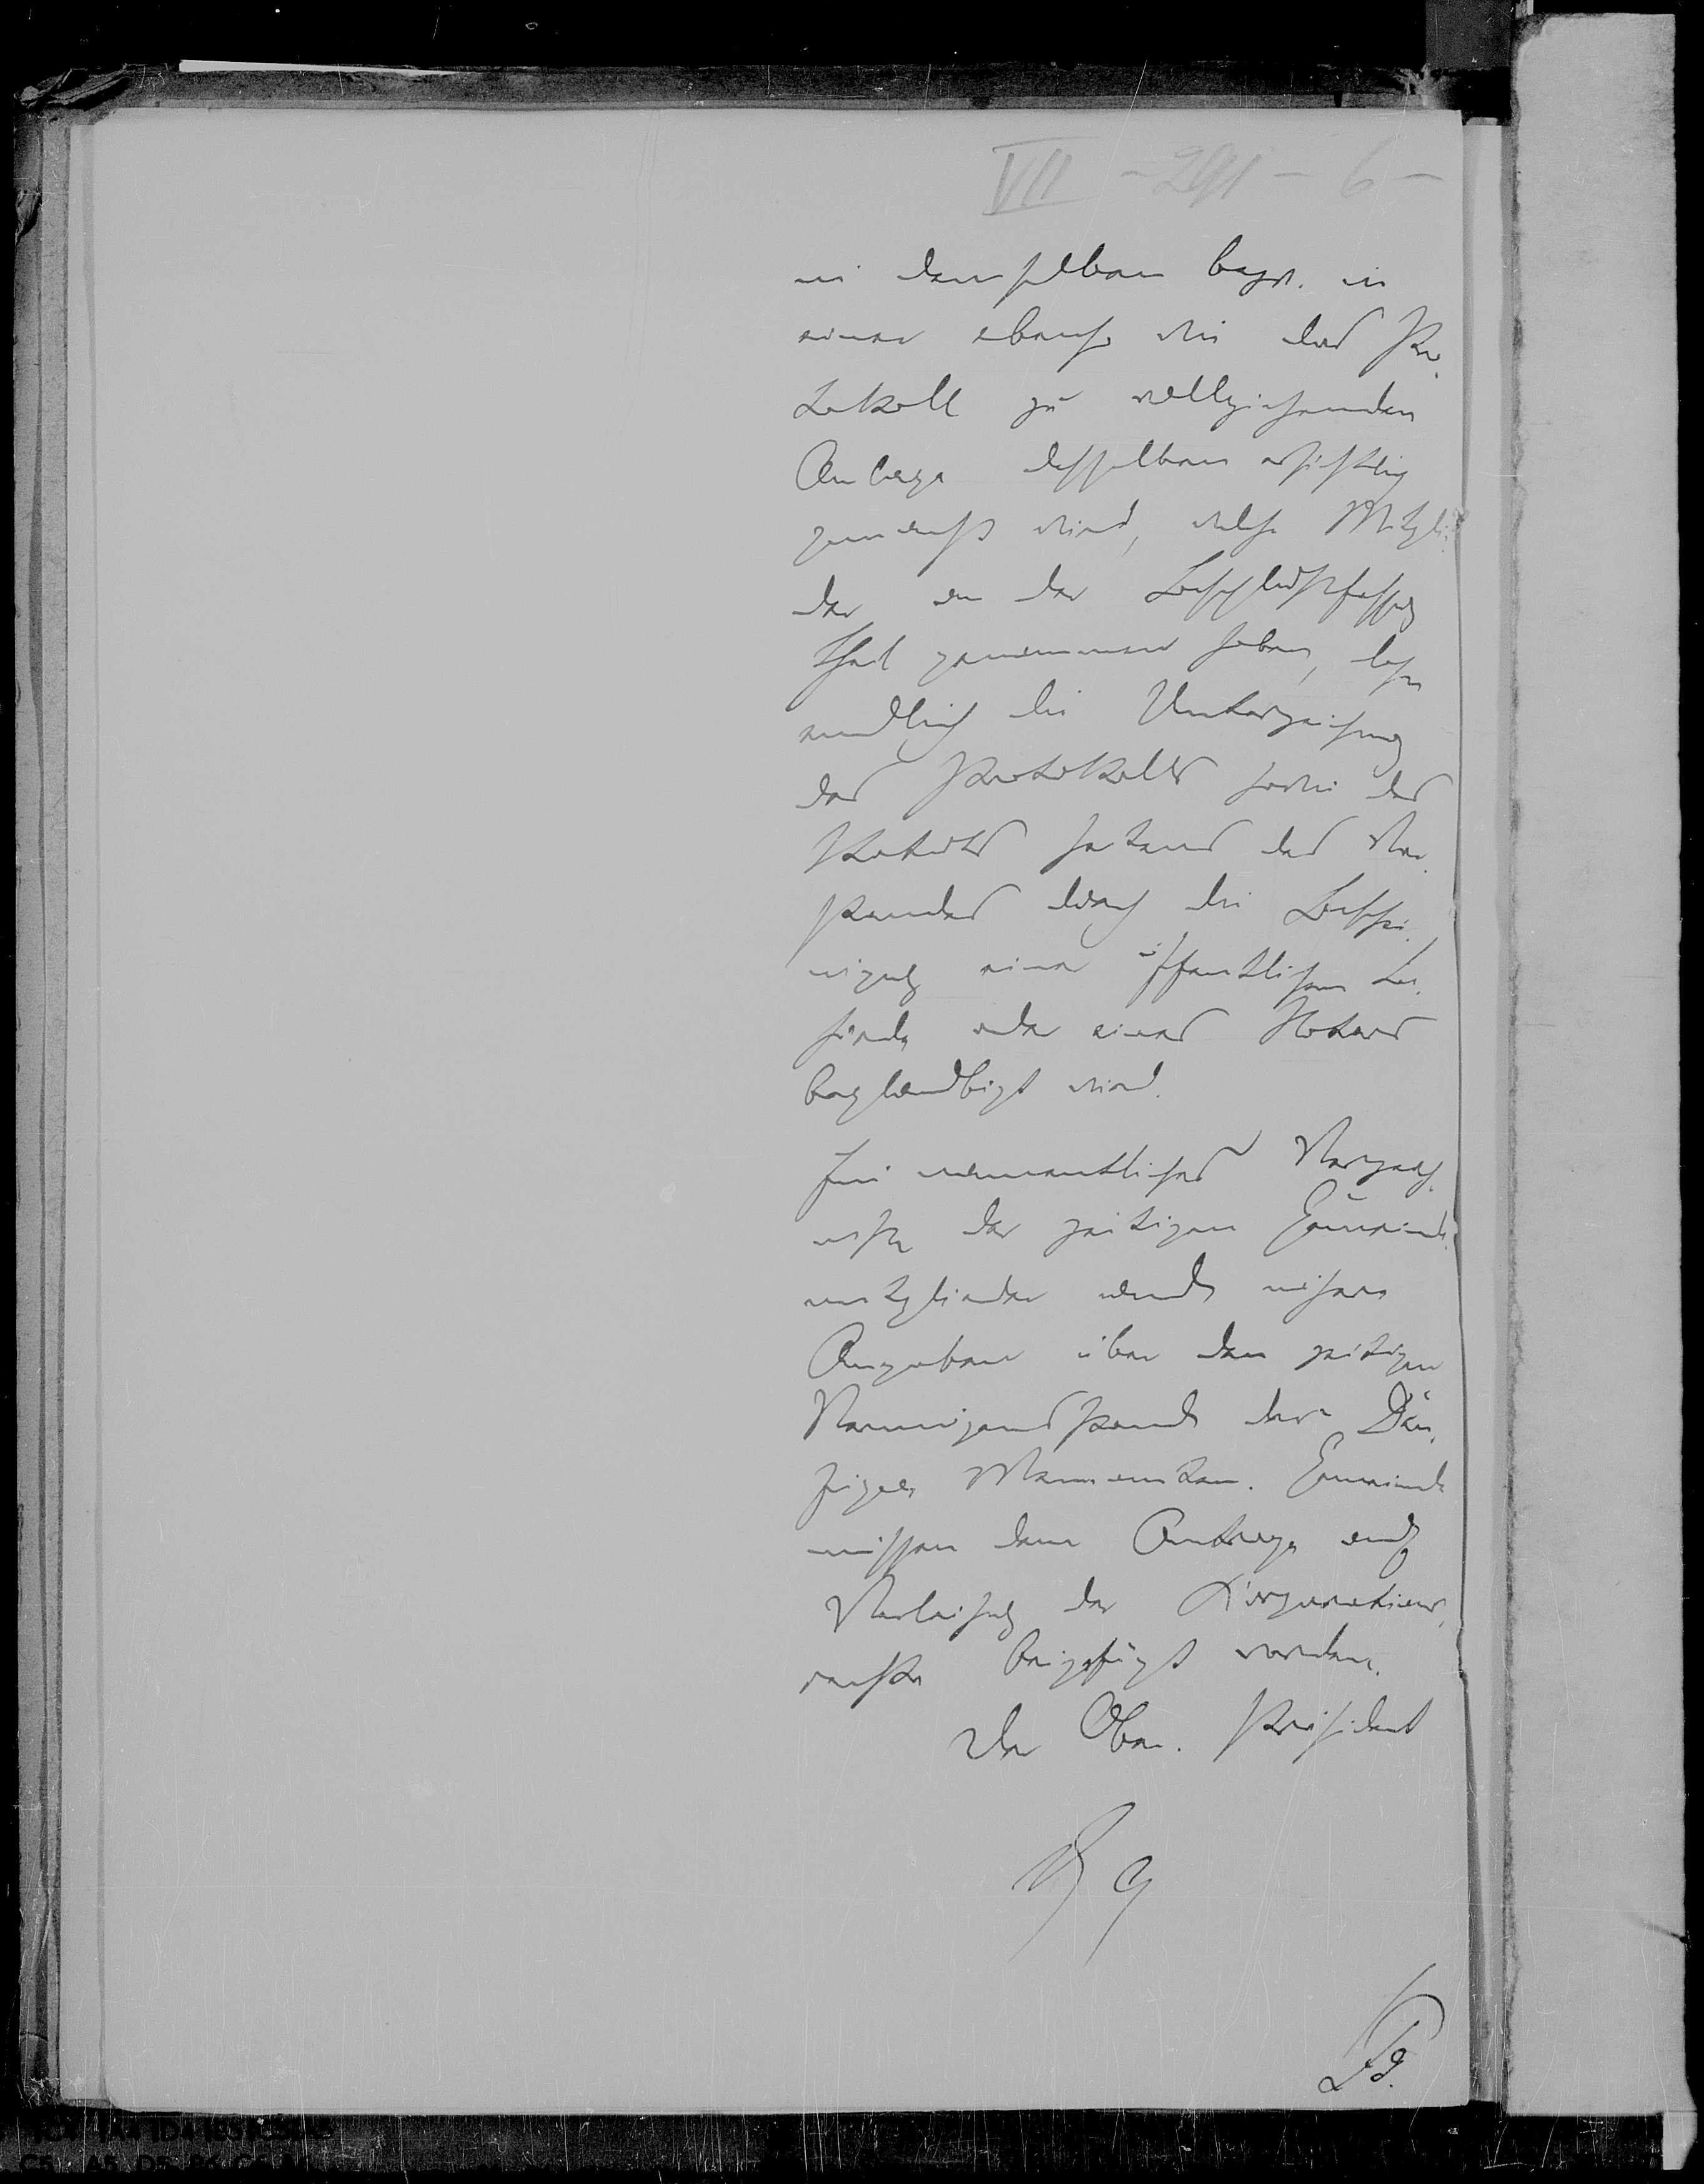 VII - 291 - 6 -
in demselben bezw. in
einer ebenso wie das Pro-
tokoll zu vollziehenden
Anlage desselben ersichtlich
gemacht wird, welche Mitglie-
der an der Beschlußfassung
theil genommen haben,
endlich die Unterzeichnung
des Protokolls sowie des
Statuts seitens des Vor-
standes durch die Beschei-
nigung einer öffentlichen Be-
hörde oder eines Notars
beglaubigt wird.
Ein namentliches Verzeich-
niß der zeitigen Gemeinde-
mitglieder und nähere
Angaben über den zeitigen
Vermögensstand der Dan-
ziger Mennoniten-Gemeinde
müssen dem Antrage auf
Verleihung der Korporations-
rechte beigefügt werden.
Der Ober-Präsident